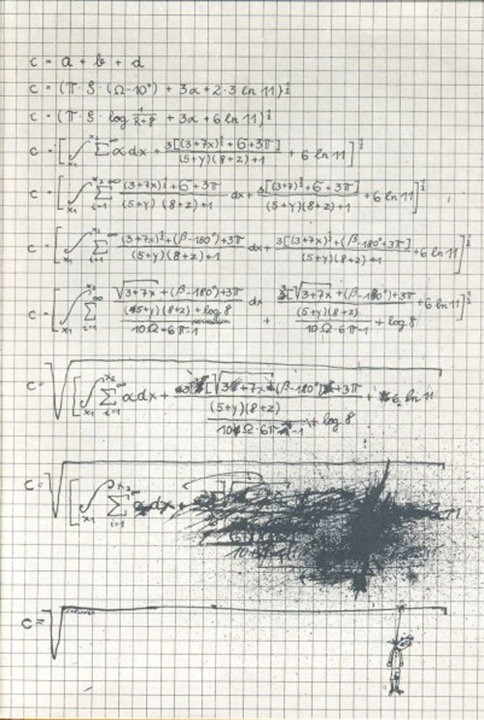 c = a + b + d
c = (π · S · (Ω-10°) + 3α + 2·3 ln 11)^½
c = (π · S · log 1/(R+8) + 3α + 6 ln 11)^½
c = [∫x₁^x₂ Σ^∞ α dx + 3[(3+7x)^½+6+3π]/((5+y)(8+z)+1) + 6 ln 11]^½
c = [∫x₁^x₂ Σi=1^∞ ((3+7x)^½+6+3π)/((5+y)(8+z)+1) dx + 3[(3+7)^½+6+3π]/((5+y)(8+z)+1) + 6 ln 11]^½
c = [∫x₁^x₂ Σi=1^∞ ((3+7x)^½+(β-180°)+3π)/((5+y)(8+z)+1) dx + 3[(3+7x)^½+(β-180°)+3π]/((5+y)(8+z)+1) + 6 ln 11]^½
c = [∫x₁^x₂ Σi=1^∞ (√(3+7x)+(β-180°)+3π)/(((5+y)(8+z)+log 8)/(10Ω·6π-1)) dx + 3[√(3+7x)+(β-180°)+3π]/((5+y)(8+z)/(10Ω·6π-1) + log 8) + 6 ln 11]^½
c = √[∫x₁^x₂ Σi=1^∞ α dx + [√(3+7x)+(β-180°)+3π]/((5+y)(8+z)/(10Ω·6π-1) + log 8) + 6 ln 11
c = √[∫x₁^x₂ Σi=1^∞ dx +
c = √